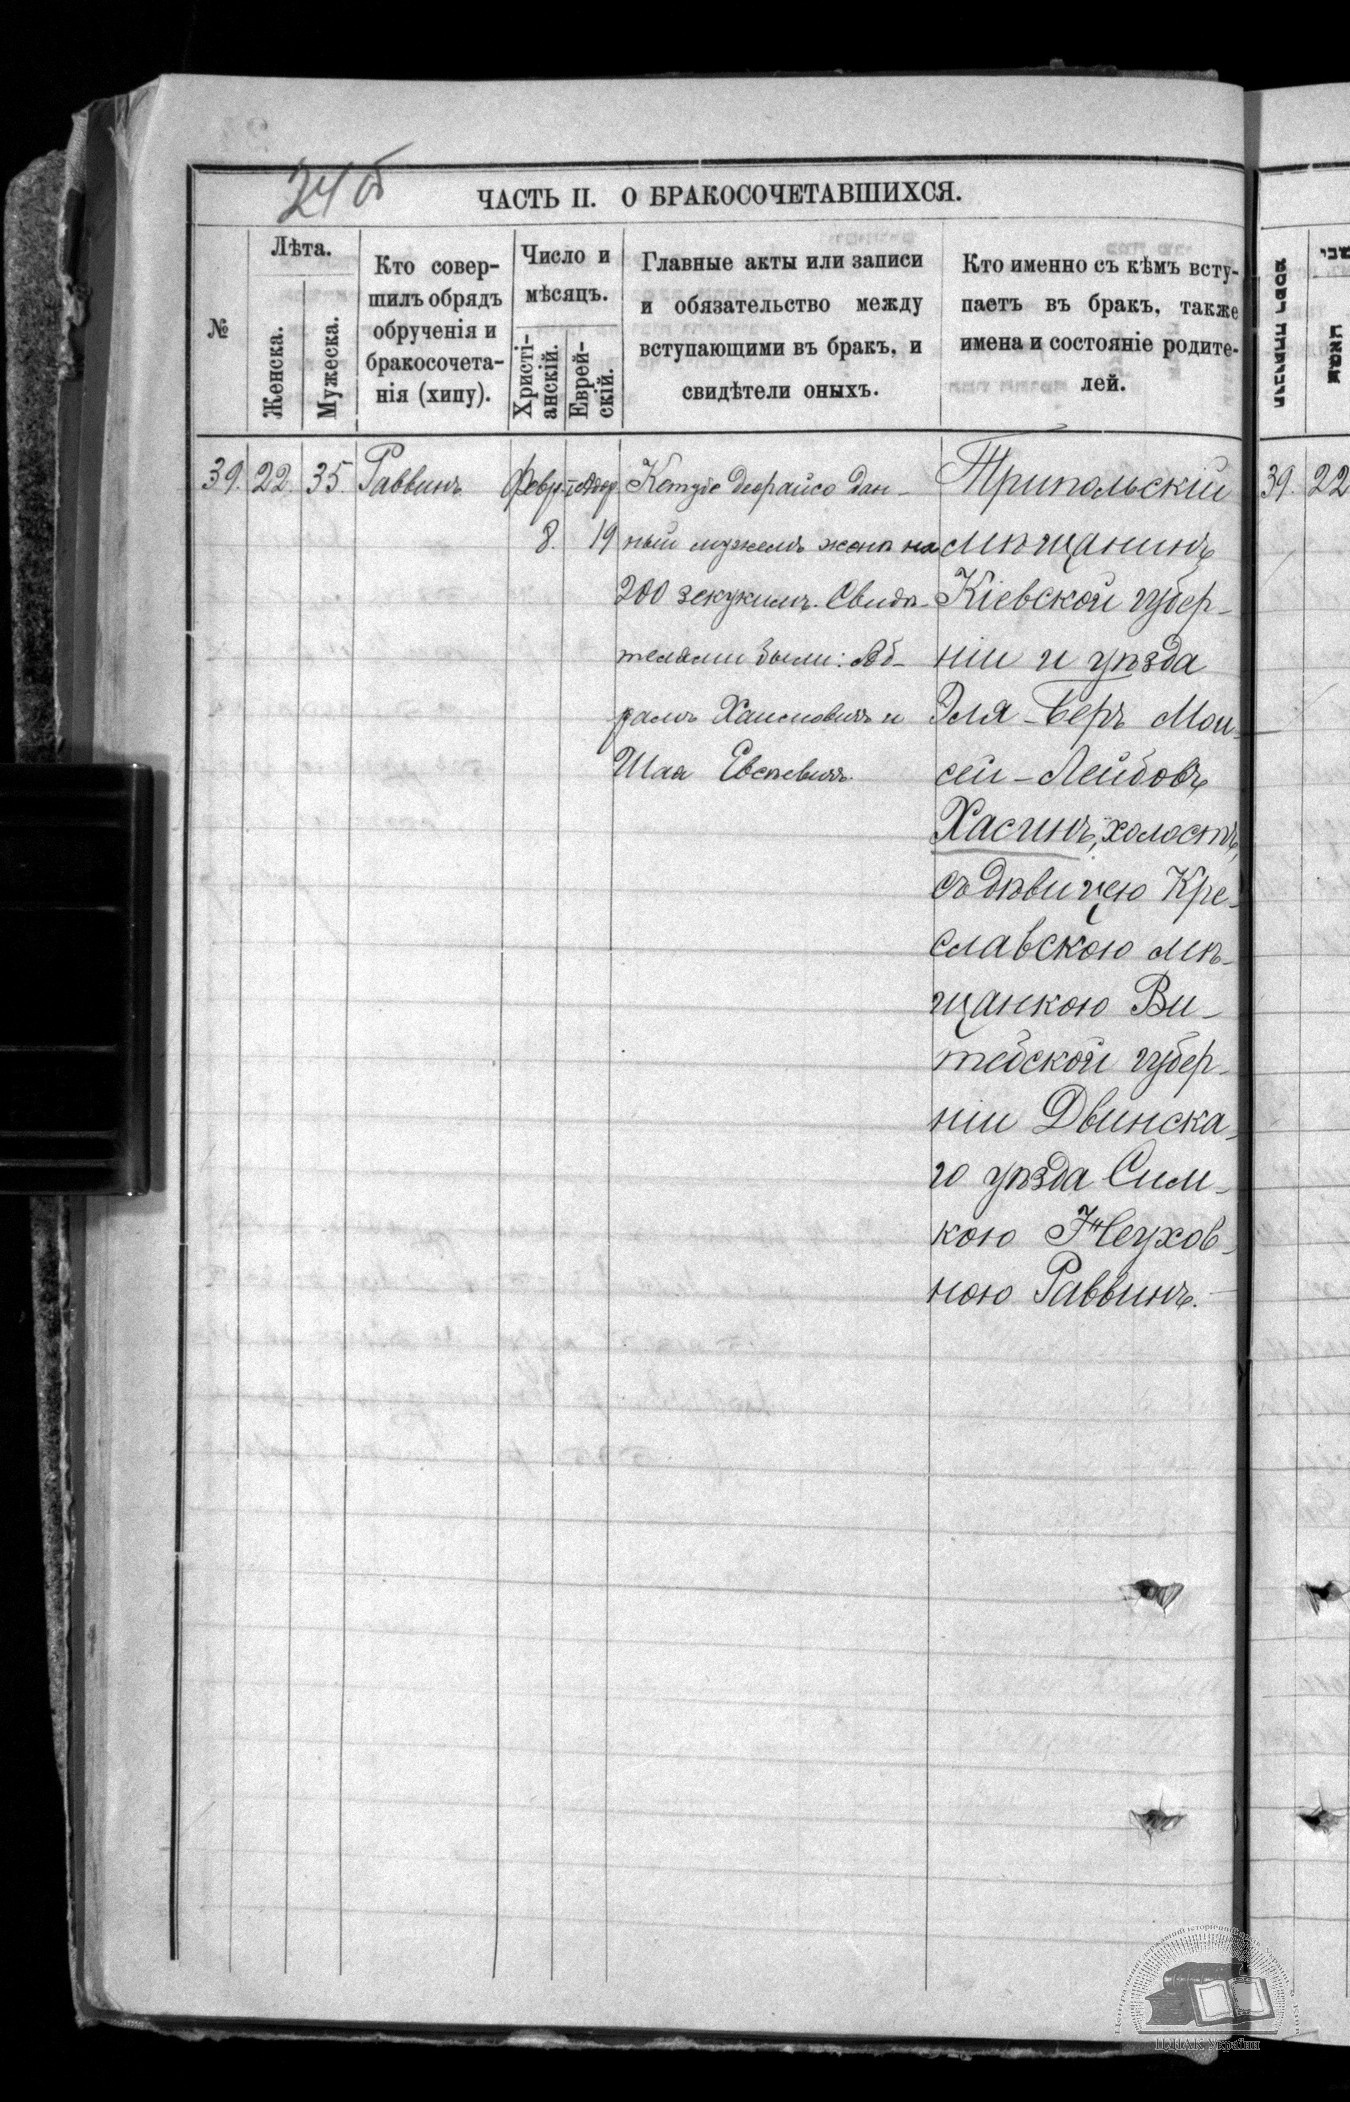 24 об
ЧАСТЬ II. О БРАКОСОЧЕТАВШИХСЯ.
№
Лѣта.
Женска.
Мужеска.
Кто совер-
шилъ обрядъ
обрученія и
бракосочета-
нія (хипу).
Число и
мѣсяцъ.
Христі-
анскій.
Еврей-
скій.
Главные акты или записи
и обязательство между
вступающими въ бракъ, и
свидѣтели оныхъ.
Кто именно съ кѣмъ всту-
паетъ въ бракъ, также
имена и состояніе родите-
лей.
39. 22. 35. Раввинъ
Февр.
8. 19
Кетубе деорайсо дан-
ный мужемъ женѣ на
200 зекукимъ. Свидѣ-
телями были: Аб-
рамъ Хаимовичъ и
Шая Евсѣевичъ.
Трипольскій
мѣщанинъ
Кіевской губер-
ніи и уѣзда
Эля-Беръ Мои-
сей-Лейбовъ
Хасинъ, холостъ,
съ дѣвицею Кре-
славскою мѣ-
щанкою Ви-
тебской губер-
ніи Двинска-
го уѣзда Сим-
кою Неухов-
ною Раввинъ.
39. 22
ЦДІАК України